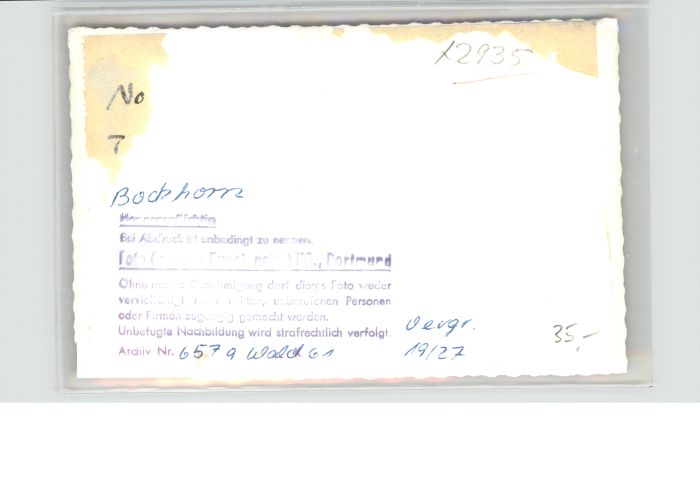 x2935
No
T
Bockhorn
Honorarpflichtig
Bei Abdruck ist unbedingt zu nennen.
Foto Dortmund
Ohne unsere Genehmigung darf dieses Foto weder
vervielfältigt noch dritten, unberufenen Personen
oder Firmen zugängig gemacht werden.
Unbefugte Nachbildung wird strafrechtlich verfolgt
Archiv Nr. 657 a Wald 61
Vergr.
19/27
35,-